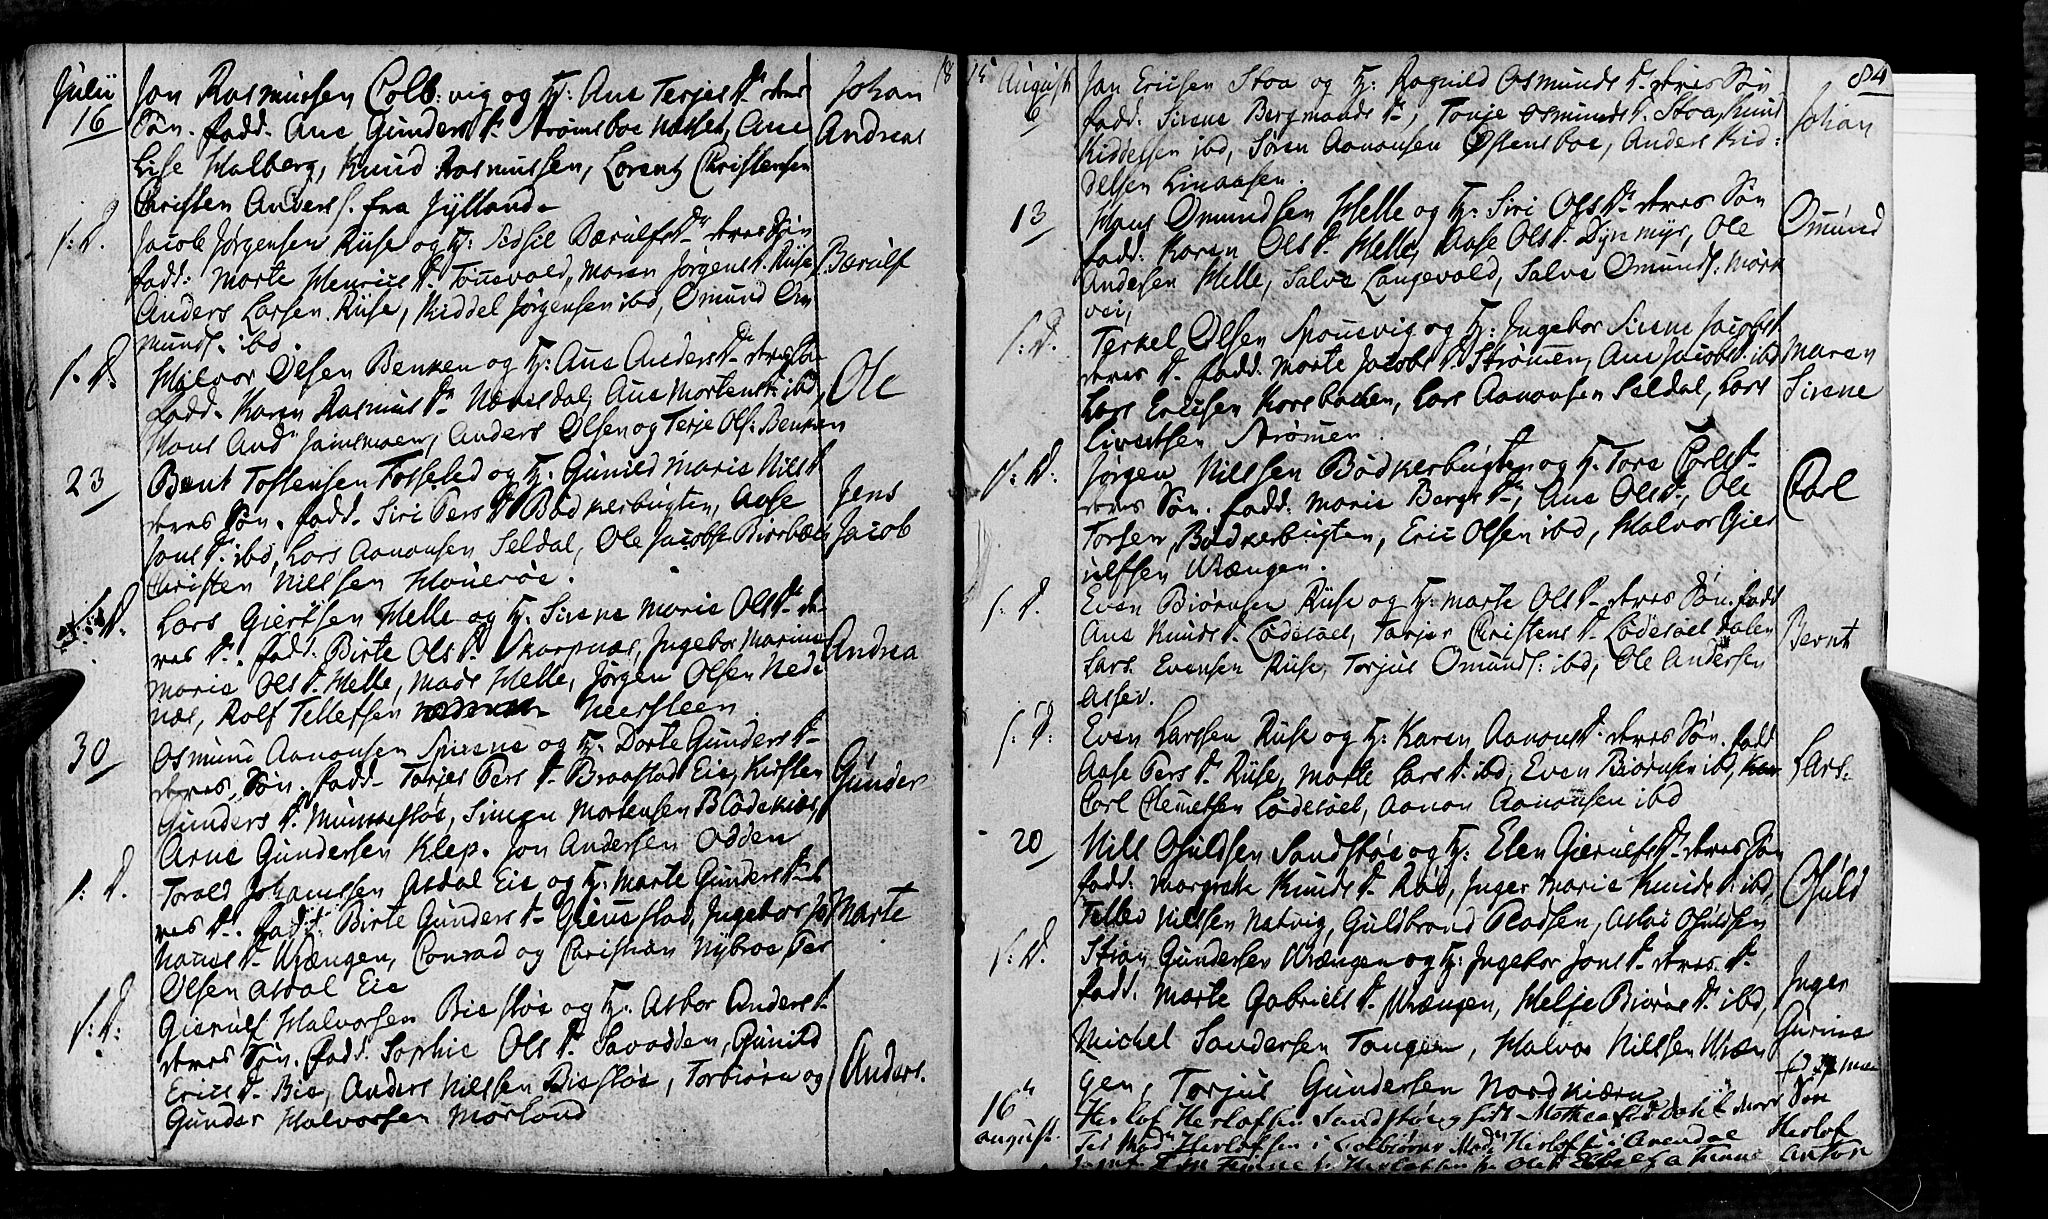 Julii
16
Jon Rasmussen Colb:vig og H: Ane Terjes D. deres
Søn. fadd. Ane Gunders D. Strømsboe Ane
Lise Halberg, Knud Rasmussen, Lorentz Christensen
Christen Anders S. fra Jylland.
Johan
Andreas
S: D.
Jacob Jørgensen Riise og H: Sidsel Bærulfs D. deres Søn
fadd: Marte Henrics D. Tousvold, Maren Jørgens D. Riise
Anders Larsen Riise, Kiddel Jørgensen ibd, Omund Om
munds. ibd.
Bærulf
S. D.
Halvor Olsen Benken og H: Ane Anders D. deres Søn
fadd. Karen Rasmus D. Næsdal, Ane Mortens D. ibd,
Hans And Anders Olsen og Terje Ols: Benken
Ole
23
Bent Tostensen Fosseled og H: Gunild Marie Nils D.
deres Søn. fadd. Siri Pers D. Bødkerbugten, Aase
Jons D. ibd, Lars Aanonsen Seldal, Ole Jacobs.
Christen Nilssen Haverøe.
Jens
Jacob
S. D.
Lars Giertsen Helle og H: Sirene Marie Ols D. de
res D. fadd. Birte Ols D. Skarpnæs, Ingebor Marine
Marie Ols D. Helle, Mads Helle, Jørgen Olsen Nede
næs, Rolf Tellefsen Neersteen
Andrea
30
Osmund Aanonsen og H. Dorte Gunders D.
deres Søn. fadd. Torjer Pers D. Braastad Eie, Kirsten
Gunders D. Simen Mortensen Blødekiær,
Arne Gundersen Klep. Jon Andersen Odden
Gunder
S: D.
Torald Johannssen Asdal Eie og H: Marte Gunders D. de
res D. fadd. Birte Gunders D. Gieustad, Ingebor Jo
hanns D. Wrængen, Conrad og Christian Nyboe Per
Olsen Asdal Eie
Marte
S: D:
Gierulf Halvorsen Biestøe og H: Asbor Anders D.
deres Søn. fadd. Sophie Ols D. Savodden, Gunild
Erics D. Bie, Anders Nilssen Biestøe, Torbiørn og
Gunder Halvorsen Mørland
Anders.
18 15
84
August
6
Jan Ericsen Stoa og H: Ragnild Osmunds D. deres Søn
fadd: Sirene Bergmands D., Tonje Osmunds D. Stoa, Knud
Kiddelsen ibd, Søren Aanonsen Østensboe, Anders Kid:
delsen Linaasen.
Johan
13
Hans Omundsen Helle og H: Siri Ols D. deres Søn
fadd: Karen Ols D. Helle, Aase Ols D. Dynmyr, Ole
Andersen Helle, Salve Langevold, Salve Omunds: Mørk
vei,
Omund
S: D.
Terkel Olsen og H: Ingebor Sirene Jacobs D.
deres D. fadd. Marte Jacobs D. Strømen, Ane Jacobs D. ibd
Lars Ericsen Korsbakken, Lars Aanonsen Seldal, Lars
Sivertsen Strømen.
Maren
Sirene
S: D:
Jørgen Nilssen Bødkerbugten og H: Tore Carls D.
deres Søn. fadd: Marie Bergs D., Ane Ols D., Ole
Torsen Bødkerbugten, Eric Olsen ibd, Halvor Gier
ulfsen Wrængen.
Carl
S: D.
Even Biørnsen Riise og H: Marte Ols D. deres Søn. fadd
Ane Knuds D. Lødesøel, Torjer Christens D. Lødesøel Dalen
Lars Evensen Riise, Torjus Omunds: ibd, Ole Andersen
Assev.
Bernt
S: D:
Even Larssen Riise og H: Karen Aanons D. deres Søn. fadd
Aase Pers D. Riise, Marte Lars D. ibd, Even Biørnsen ibd,
Carl Clemetsen Lødesøel, Aanon Aanonsen ibd
Lars.
20
Nils Osuldsen Sandstøe og H: Elen Gierulfs D. deres Søn
fadd: Margrete Knuds D. Røe, Inger Marie Knuds D. ibd,
Tellev Nilssen Natvig, Guldbrand Pladsen, Aslac Osuldsen
Osuld
S: D.
Stian Gundersen Wrængen og H: Ingebor Jons D. deres D.
fadd. Marte Gabriels D. Wrængen, Helje Biørns D. ibd,
Michel Sandersen Tangen, Halvor Nilssen Wræn
gen, Torjus Gundersen Nordkiærn
Inger
Gurine
16
august.
Herlof Herlofsen Sandstøe
Herlofsen i Colbiørns Herlofsen i Arendal
Søn
Herlof
Anton